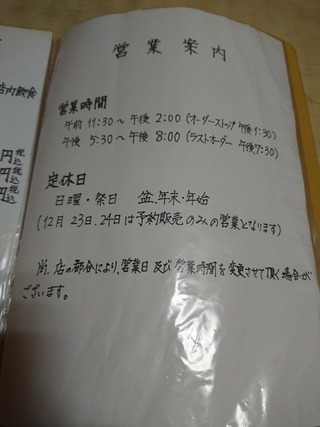 営業案内
店内飲食
営業時間
午前 11:30～午後 2:00 (オーダーストップ 午後1:30)
午後 5:30～午後 8:00 (ラストオーダー 午後7:30)
円税込
円税込
円税込
定休日
日曜・祭日 盆.年末・年始
(12月 23日.24日は予約販売のみの営業となります)
尚.店の都合により、営業日及び営業時間を変更させて頂く場合が
ございます。